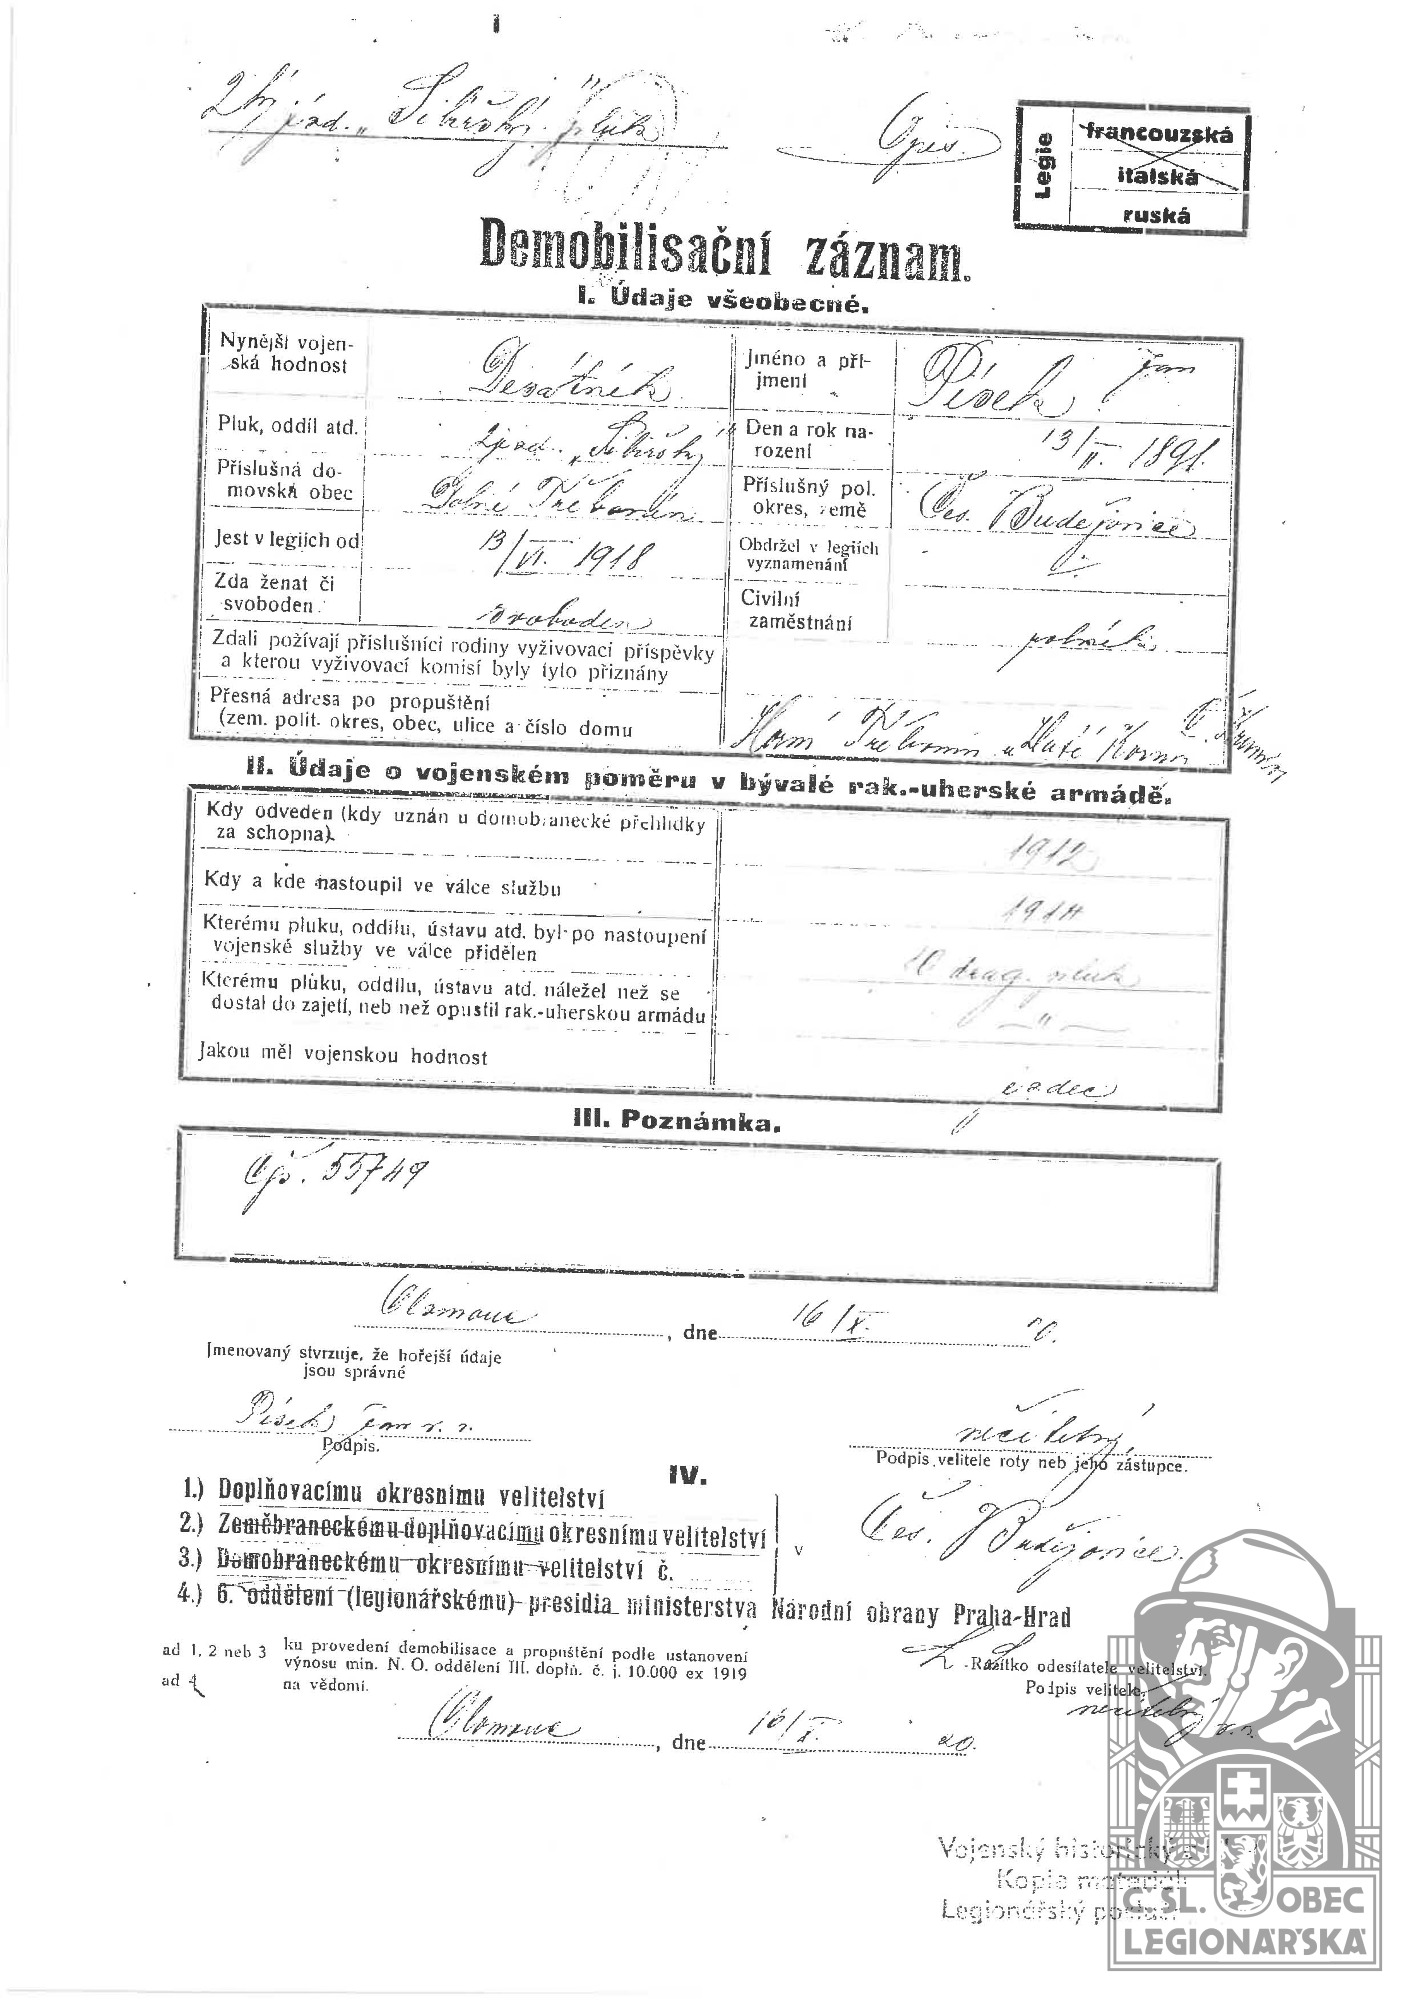 2 jízd. „Sibiřský" pluk
Opis.
Legie
francouzská
italská
ruská
Demobilisační záznam.
I. Údaje všeobecné.
Nynější vojen-
ská hodnost
Desátník
Jméno a pří-
jmení
Písek Jan
Pluk, oddíl atd.
2 jízd. „Sibiřský"
Den a rok na-
rození
13/II. 1891.
Příslušná do-
movská obec
Dolní Třebonín
Příslušný pol.
okres, země
Čes. Budějovice
Jest v legiích od
13/VI. 1918
Obdržel v legiích
vyznamenání
Zda ženat či
svoboden.
svoboden
Civilní
zaměstnání
rolník
Zdali požívají příslušníci rodiny vyživovací příspěvky
a kterou vyživovací komisí byly tyto přiznány
Přesná adresa po propuštění
(zem. polit. okres, obec, ulice a číslo domu
Horní Třebonín u Zlaté Koruny Č. Krumlov
II. Údaje o vojenském poměru v bývalé rak.-uherské armádě.
Kdy odveden (kdy uznán u domobranecké přehlídky
za schopna).
1912
Kdy a kde nastoupil ve válce službu
1914
Kterému pluku, oddílu, ústavu atd. byl po nastoupení
vojenské služby ve válce přidělen
10 drag. pluk
Kterému pluku, oddílu, ústavu atd. náležel než se
dostal do zajetí, neb než opustil rak.-uherskou armádu
— " —
Jakou měl vojenskou hodnost
jezdec
III. Poznámka.
Čjs. 55749
Olomouc, dne 16/X. 20.
Jmenovaný stvrzuje, že hořejší údaje
jsou správné
Písek Jan v. r.
Podpis.
nečitelný,
Podpis velitele roty neb jeho zástupce.
IV.
1.) Doplňovacímu okresnímu velitelství
2.) Zeměbraneckému doplňovacímu okresnímu velitelství
3.) Domobraneckému okresnímu velitelství č.
v Čes. Budějovice.
4.) 6. oddělení (legionářskému) presidia ministerstva Národní obrany Praha-Hrad
ad 1, 2 neb 3 ku provedení demobilisace a propuštění podle ustanovení
výnosu min. N. O. oddělení III. doplň. č. j. 10.000 ex 1919
ad 4 na vědomí.
L. S.
Razítko odesílatele velitelství.
Podpis velitele
nečitelný v. r.
Olomouc, dne 16/X. 20.
Vojenský historický
Kopie materiál
Legionářský
ČSL. OBEC
LEGIONÁŘSKÁ